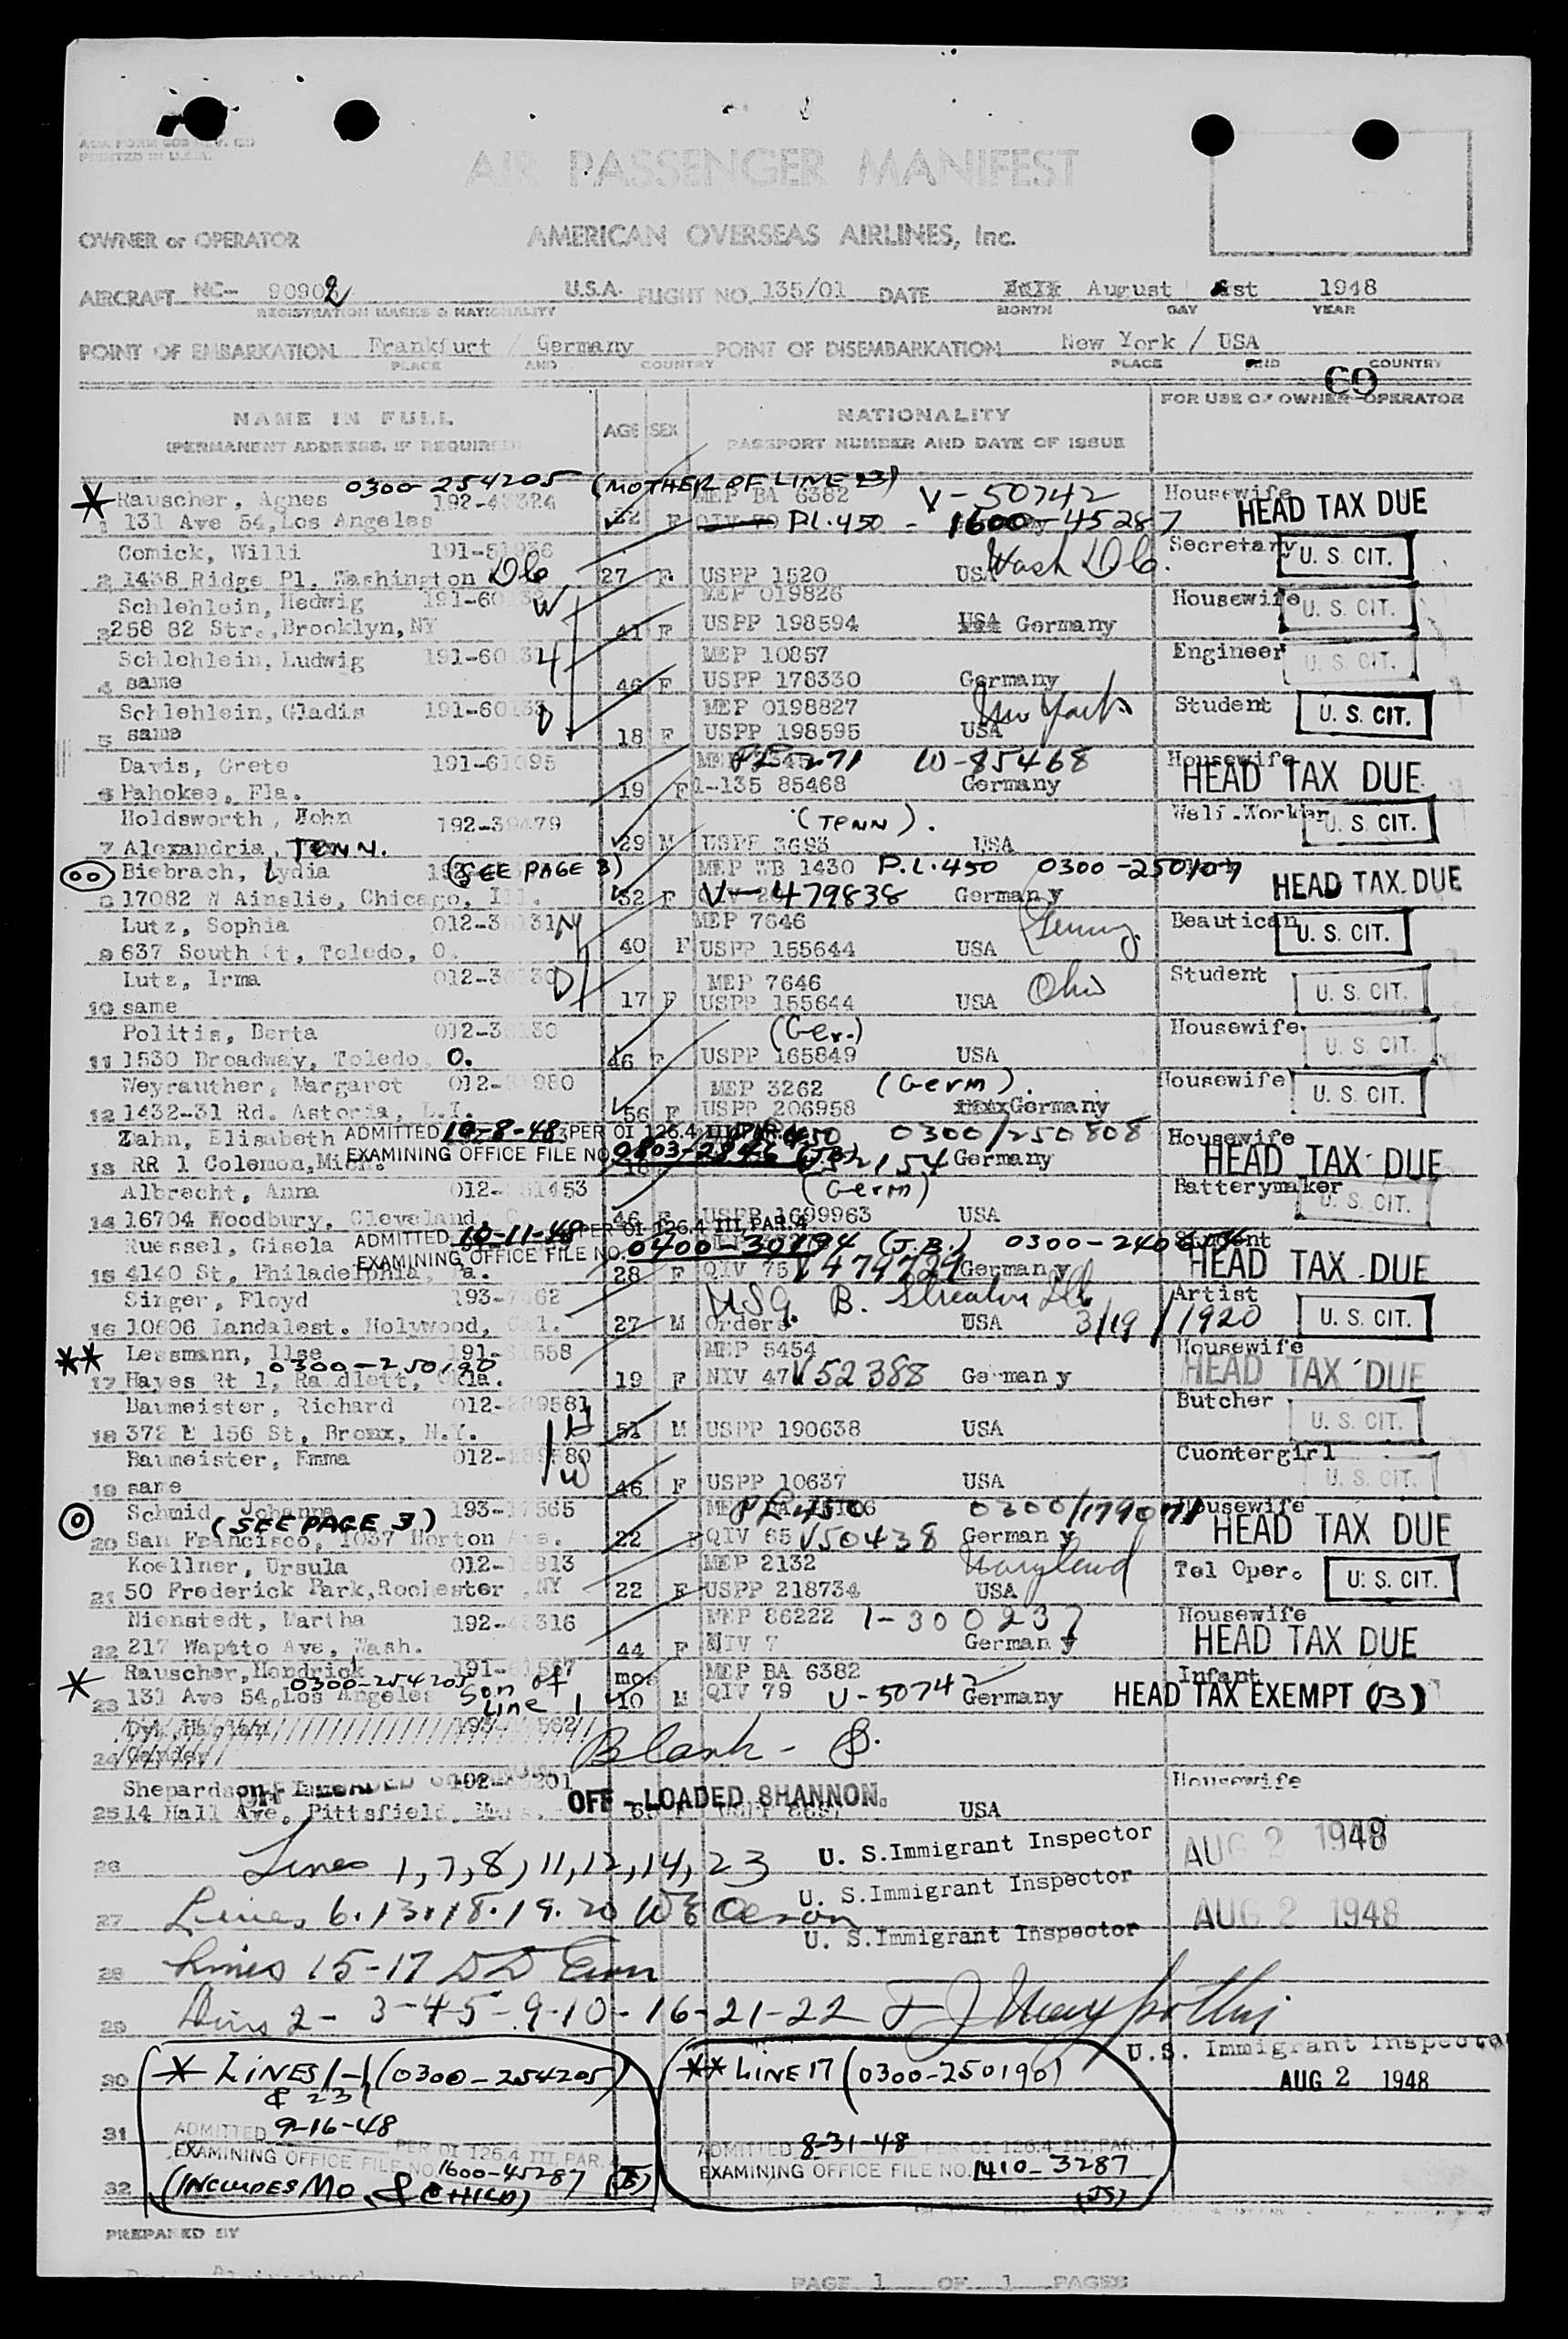 ACA FORM
PRINTED IN U.S.A.
AIR PASSENGER MANIFEST
OWNER or OPERATOR AMERICAN OVERSEAS AIRLINES, Inc.
AIRCRAFT NC- 90902 U.S.A. FLIGHT NO. 135/01 DATE August 1st 1948
REGISTRATION MARKS & NATIONALITY MONTH DAY YEAR
POINT OF EMBARKATION Frankfurt / Germany POINT OF DISEMBARKATION New York / USA
PLACE AND COUNTRY PLACE AND COUNTRY
69
NAME IN FULL AGE SEX NATIONALITY FOR USE OF OWNER OPERATOR
(PERMANENT ADDRESS, IF REQUIRED) PASSPORT NUMBER AND DATE OF ISSUE
0300-254205 (MOTHER OF LINE 23)
* Rauscher, Agnes MEP BA 6382 V-50742 Housewife
1 131 Ave 54, Los Angeles F P.L.450 - 1600-45287 HEAD TAX DUE
Comick, Willi Secretary
2 1438 Ridge Pl. Washington DC 27 F USPP 1520 USA Wash DC. U. S. CIT.
Schlehlein, Hedwig W MEP 019826 Housewife
3 258 82 Str., Brooklyn, NY 41 F USPP 198594 USA Germany U. S. CIT.
Schlehlein, Ludwig H MEP 10857 Engineer
4 same 46 F USPP 178330 Germany U. S. CIT.
Schlehlein, Gladis D MEP 0198827 New York Student
5 same 18 F USPP 198595 USA U. S. CIT.
Davis, Grete PL 271 W-85468 Housewife
6 Pahokee, Fla. 19 F 1-135 85468 Germany HEAD TAX DUE
Holdsworth, John 192-39479 (TENN). Welf. Worker
7 Alexandria, TENN. 29 M USPP 3693 USA U. S. CIT.
Biebrach, Lydia (SEE PAGE 3) MEP WB 1430 P.L.450 0300-250107
8 17082 W Ainslie, Chicago, Ill. 32 F V-479838 Germany HEAD TAX DUE
Lutz, Sophia MEP 7646 Germ. Beautican
9 637 South St, Toledo, O. 40 F USPP 155644 USA U. S. CIT.
Lutz, Irma D MEP 7646 Student
10 same 17 F USPP 155644 USA Ohio U. S. CIT.
Politis, Berta (Ger.) Housewife
11 1530 Broadway, Toledo, O. 46 F USPP 165849 USA U. S. CIT.
Weyrauther, Margaret MEP 3262 (Germ). Housewife
12 1432-31 Rd. Astoria, L.I. 56 F USPP 206958 Germany U. S. CIT.
Zahn, Elisabeth ADMITTED 10-8-48 PER OI 126.4 III, PAR. 4 0300/250808 Housewife
13 RR 1 Colemon, Mich. EXAMINING OFFICE FILE NO. 0803-2846 Germany HEAD TAX DUE
Albrecht, Anna (Germ) Batterymaker
14 16704 Woodbury, Cleveland 46 F USPP 1699963 USA U. S. CIT.
Ruessel, Gisela ADMITTED 10-11-48 PER OI 126.4 III, PAR. 4
EXAMINING OFFICE FILE NO. 0400-30194 (J.B.)
15 4140 St, Philadelphia, Pa. 28 F QIV 75 V479729 Germany HEAD TAX DUE
Singer, Floyd B. Streator Ill Artist
16 10606 Landalest. Holywood, Cal. 27 M Orders USA 3/19/1920 U. S. CIT.
** Lessmann, Ilse 0300-250190 MEP 5454 Housewife
17 Hayes Rt 1, Randlett, Okla. 19 F NIV 47 V52388 Germany HEAD TAX DUE
Baumeister, Richard H Butcher
18 372 E 156 St, Bronx, N.Y. 51 M USPP 190638 USA U. S. CIT.
Baumeister, Emma W Cuontergirl
19 same 46 F USPP 10637 USA U. S. CIT.
Schmid Johanna (SEE PAGE 3) PL 450 0300/179071 Housewife
20 San Francisco, 1037 Horton Ave. 22 F QIV 65 V50438 Germany HEAD TAX DUE
Koellner, Ursula MEP 2132 Maryland Tel Oper.
21 50 Frederick Park, Rochester, NY 22 F USPP 218734 USA U. S. CIT.
Nienstedt, Martha MEP 86222 1-300237 Housewife
22 217 Wapato Ave, Wash. 44 F NIV 7 Germany HEAD TAX DUE
* Rauscher, Hendrick 0300-254205 Son of Line 1 mos MEP BA 6382 Infant
23 131 Ave 54, Los Angeles 10 M QIV 79 V-50742 Germany HEAD TAX EXEMPT (B)
24 Blank -
Shepardson OFF-LOADED SHANNON. Housewife
25 14 Hall Ave, Pittsfield, Mass. USA
26 Lines 1, 7, 8, 11, 12, 14, 23 U. S. Immigrant Inspector AUG 2 1948
27 Lines 6. 13. 18. 19. 20 U. S. Immigrant Inspector AUG 2 1948
28 Lines 15-17 U. S. Immigrant Inspector
29 Lines 2-3-4-5-9-10-16-21-22
U.S. Immigrant Inspector
AUG 2 1948
30 * LINES 1 & 23 (0300-254205) ** LINE 17 (0300-250190)
31 ADMITTED 9-16-48 PER OI 126.4 III, PAR. 4 ADMITTED 8-31-48 PER OI 126.4 III, PAR. 4
EXAMINING OFFICE FILE NO. 1600-45287 EXAMINING OFFICE FILE NO. 1410-3287
32 (INCLUDES MO & CHILD) (JS)
PREPARED BY
PAGE 1 OF 1 PAGES